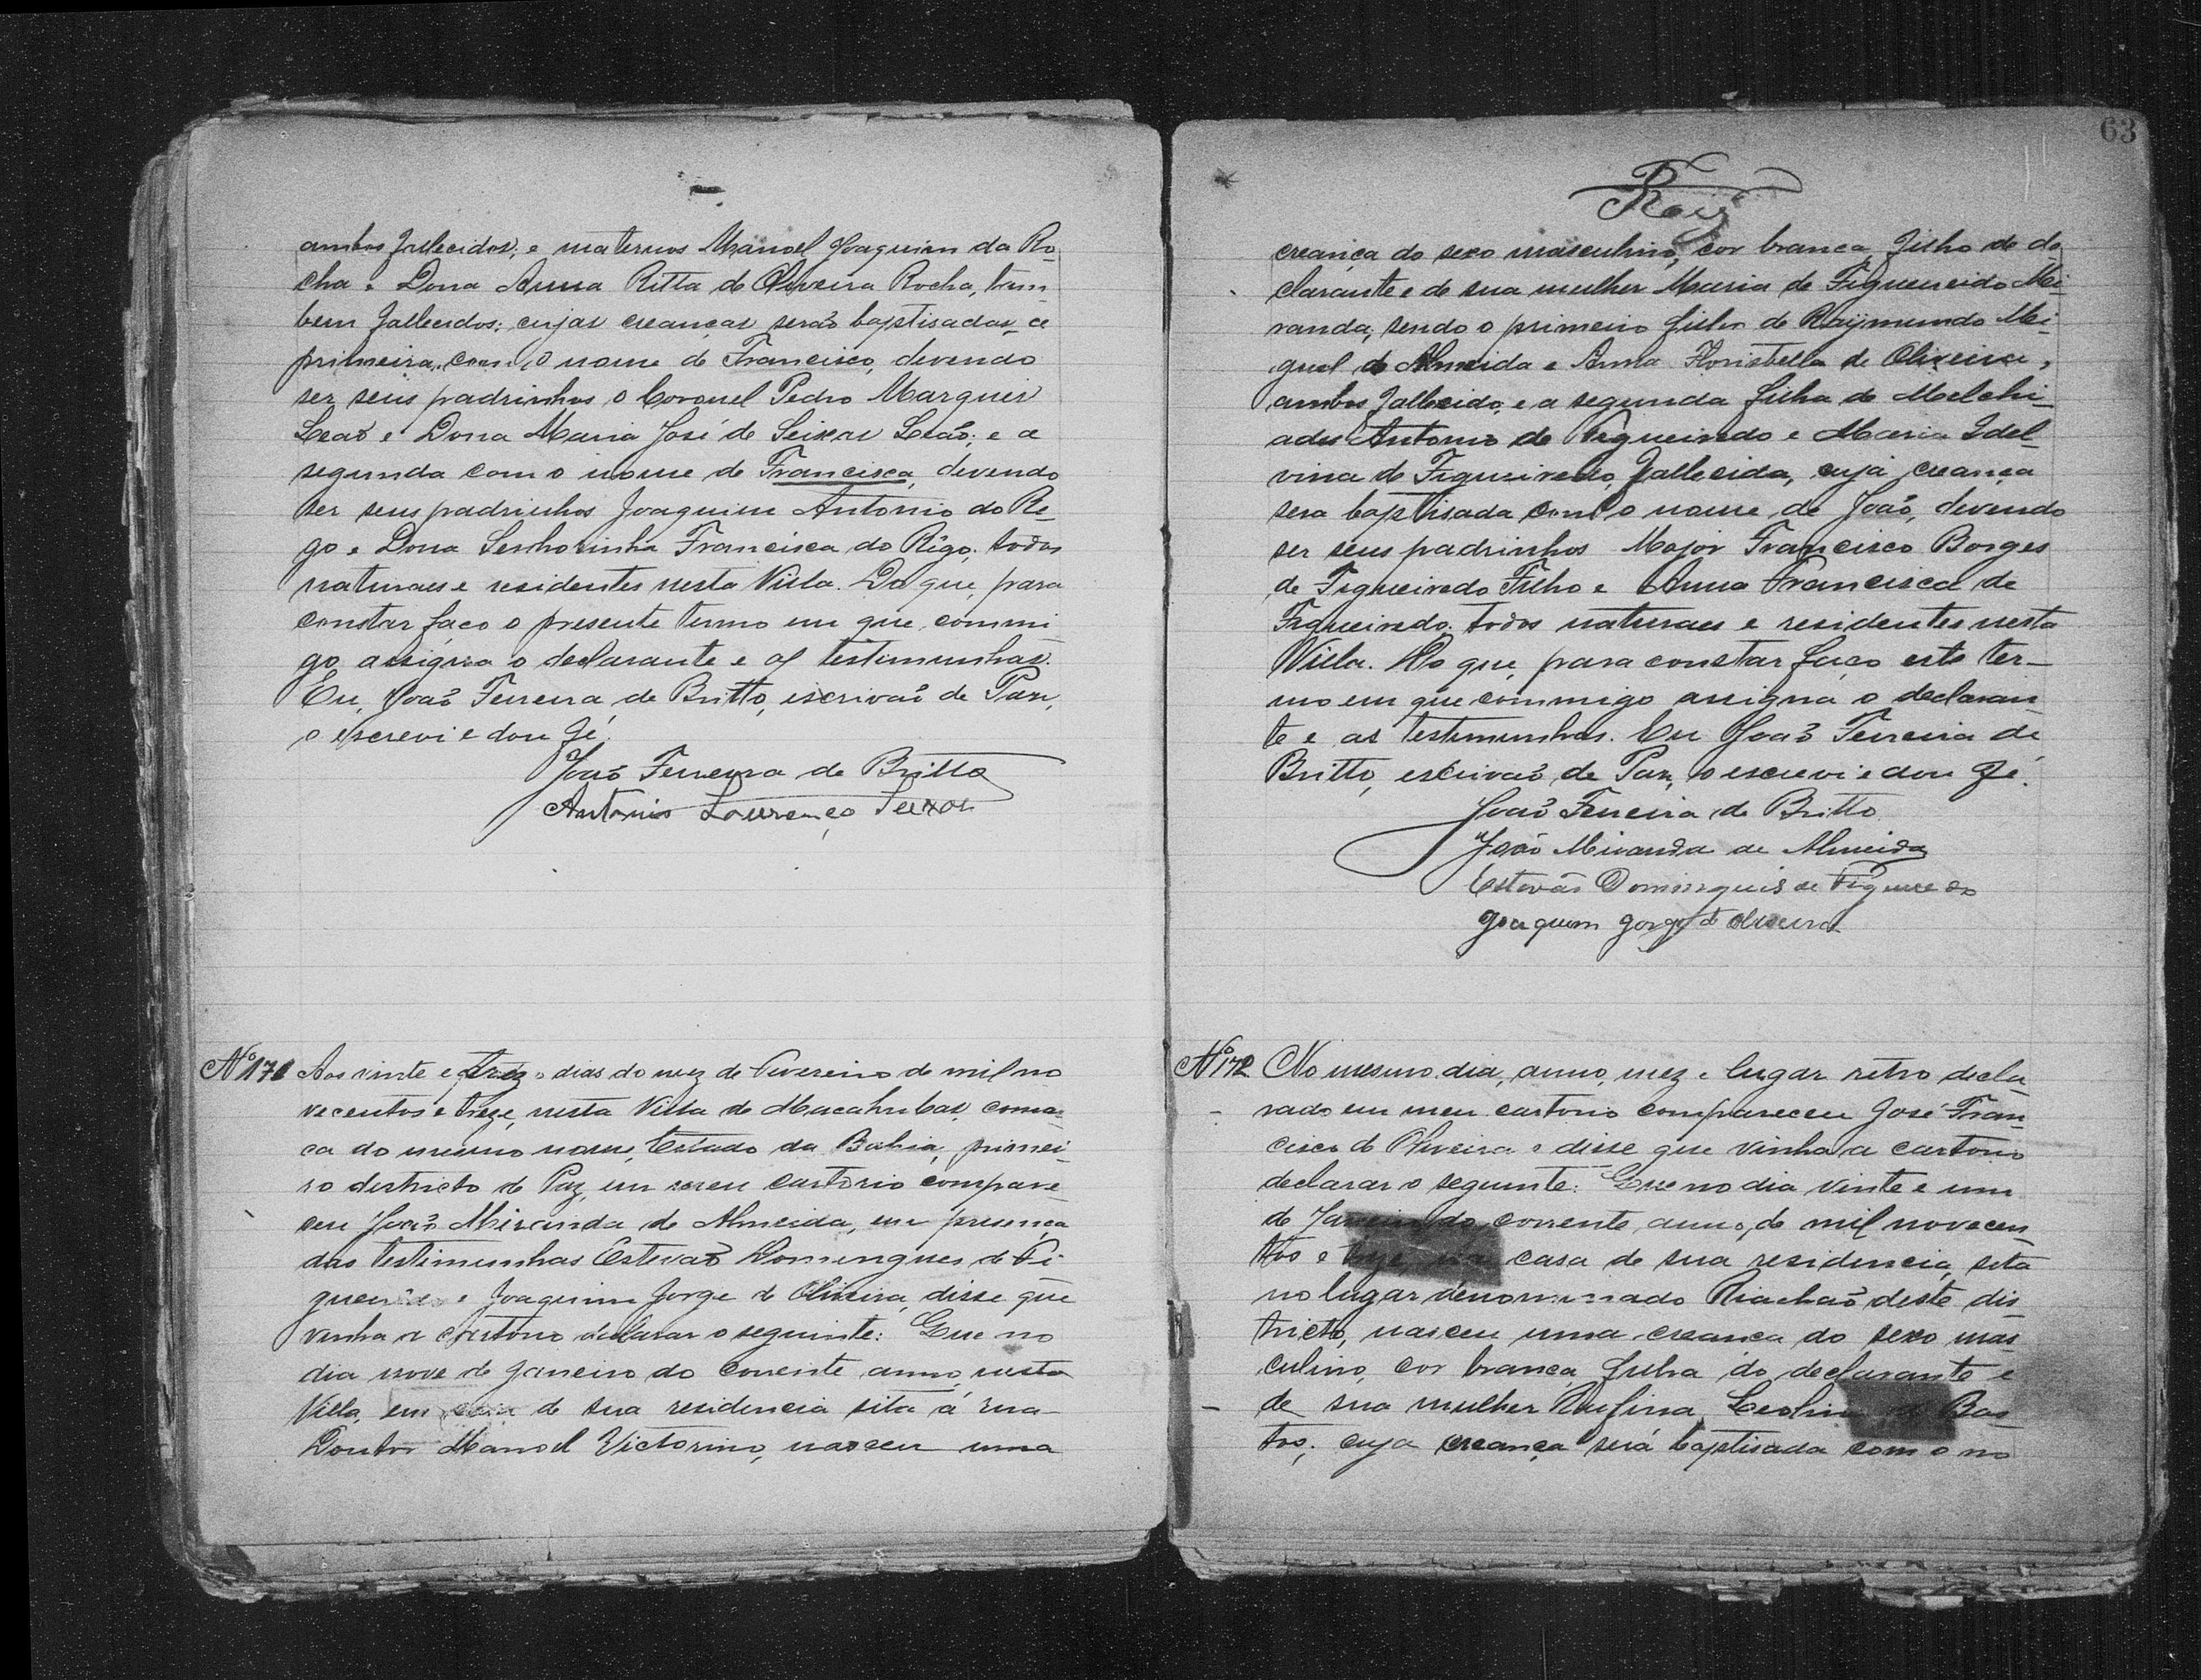 ambos fallecidos; e maternos Manoel Joaquim da Ro-
cha e Dona Anna Ritta de Oliveira Rocha, tam-
bem fallecidos; cujas creanças serão baptisadas, a
primeira, com o nome de Francisco, devendo
ser seus padrinhos o Coronel Pedro Marques
Leão e Dona Maria José de Seixas Leão; e a
segunda com o nome de Francisca, devendo
ser seus padrinhos Joaquim Antonio do Re-
go e Dona Senhorinha Francisca do Rêgo, todos
naturaes e residentes nesta Villa. Do que, para
constar faço o presente termo em que commi
go assigna o declarante e as testimunhas.
Eu, João Ferreira de Britto, escrivão de Paz,
o escrevi e dou fé.
João Ferreira de Britto
Antonio Lourenço Seixas
Nº 171 Aos vinte e trez dias do mez de Fevereiro de mil no
vecentos e treze, nesta Villa de Macahubas, comar
ca do mesmo nome, Estado da Bahia, primei-
ro districto de Paz, em meu cartorio compare
ceu João Miranda de Almeida, em presença
das testimunhas Estevão Domingues de Fi-
gueiredo e Joaquim Jorge de Oliveira, disse que
vinha a cartorio declarar o seguinte: Que no
dia nove de Janeiro do corrente anno, nesta
Villa, em casa de sua residencia sita á rua
Doutor Manoel Victorino, nasceu uma
63
creança do sexo masculino, cor branca, filho do de
clarante e de sua mulher Maria de Figueireido Mi-
randa; sendo o primeiro filho de Raymundo Mi-
guel de Almeida e Anna Floristella de Oliveira,
ambos fallecido, e a segunda filha de Melchi-
ades Antonio de Figueiredo e Maria Idel-
vina de Figueiredo, fallecida, cuja creança
sera baptisada com o nome de João, devendo
ser seus padrinhos Major Francisco Borges
de Figueiredo Filho e Anna Francisca de
Figueiredo, todos naturaes e residentes nesta
Villa. Do que, para constar faço este ter-
mo em que commigo assigna o declaran
te e as testimunhas. Eu João Ferreira de
Britto, escrivão de Paz, o escrevi e dou fé.
João Ferreira de Britto
João Miranda de Almeida
Estevão Domingues de Figueiredo
Joaquim Jorge de Oliveira
Nº 172 No mesmo dia, anno, mez e lugar retro decla
rado em meu cartorio compareceu José Fran
cisco de Oliveira e disse que vinha a cartorio
declarar o seguinte: Que no dia vinte e um
de Janeiro do corrente anno, de mil novecen
tos e treze na casa de sua residencia, sita
no lugar denominado Riachão deste dis
tricto, nasceu uma creança do sexo mas
culino, cor branca, filha do declarante e
de sua mulher Rufina Bas
tos; cuja creança será baptisada com o no